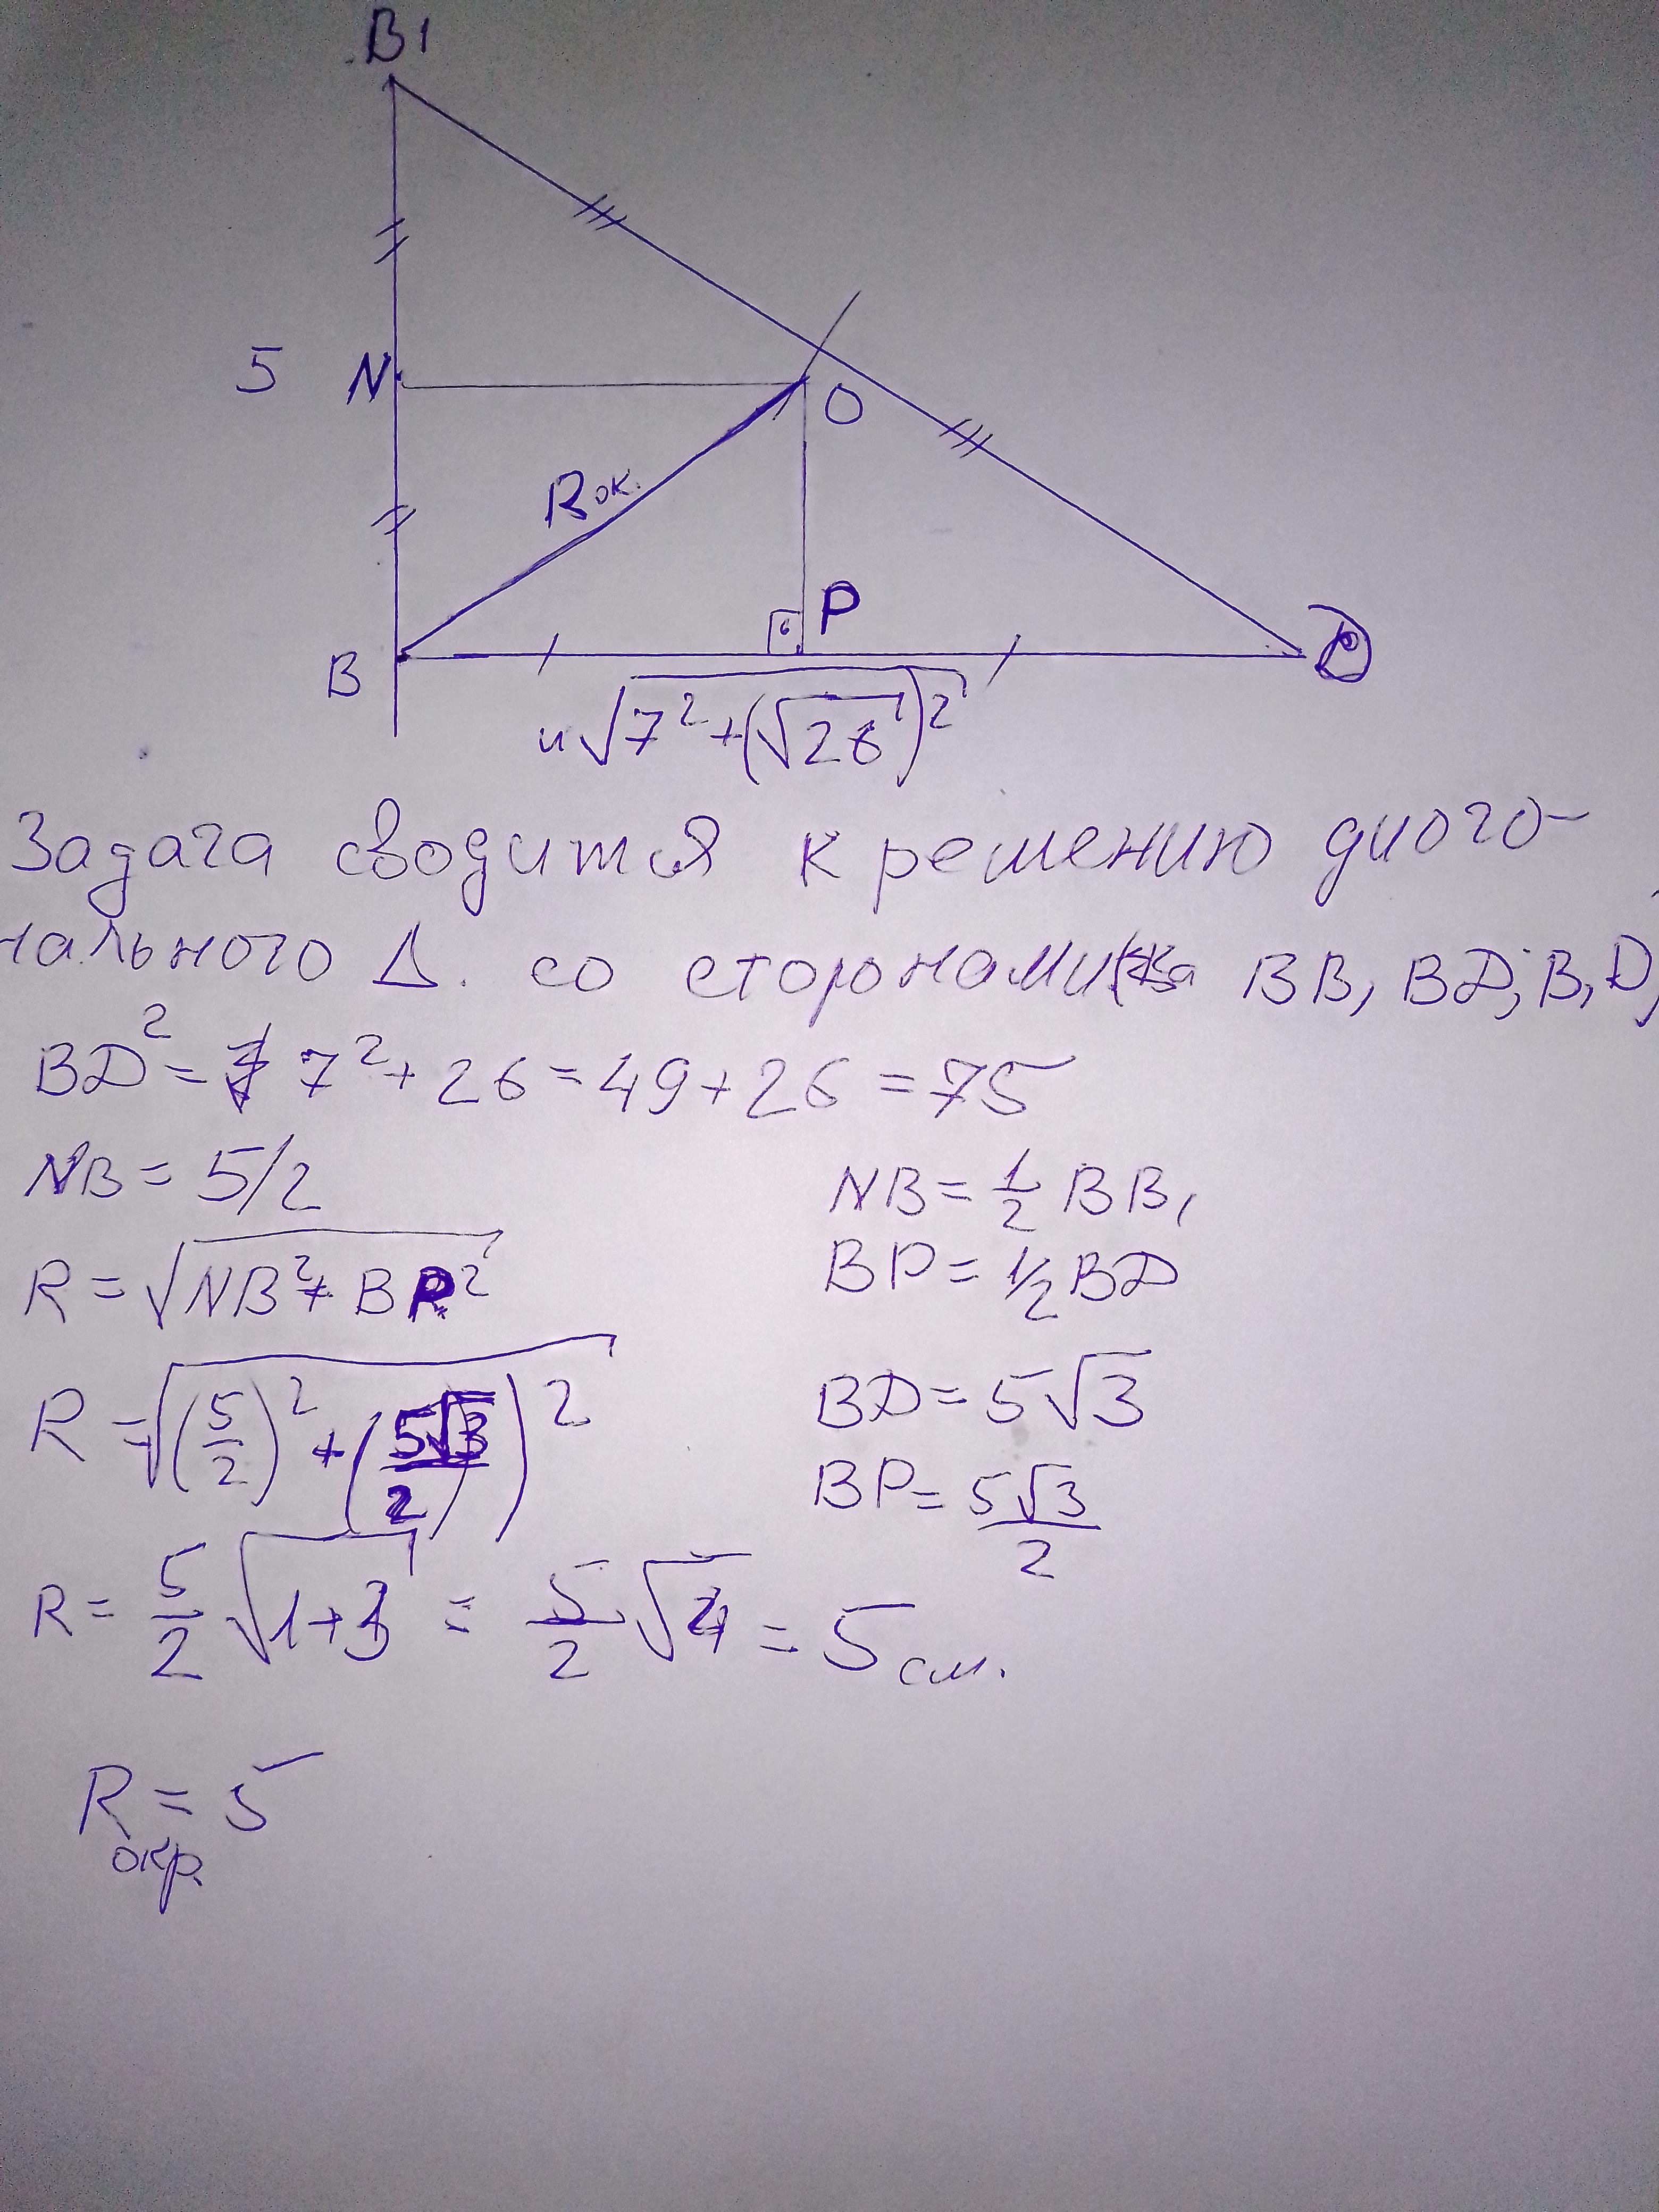 B1
5 N O
Rок.
P
B D
и √7²+(√26)²
Задача сводится к решению диого-
нального Δ. со сторонами BB₁ BD; B₁D,
BD² = 7²+26=49+26=75
NB=5/2 NB=1/2 BB₁
R=√NB²+BP² BP=1/2BD
R=√(5/2)²+(5√3/2)² BD=5√3
BP=5√3/2
R=5/2√1+3 = 5/2√4=5см.
R окр.=5